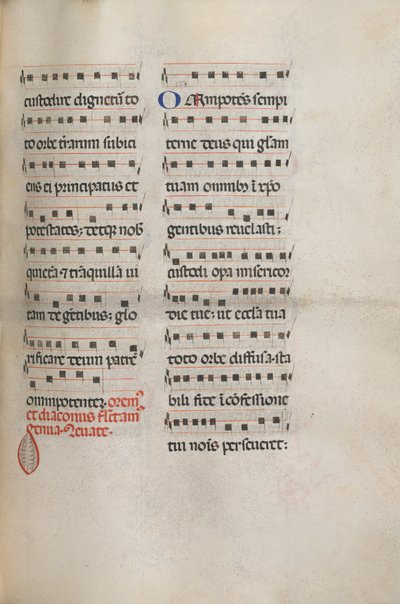 custodire dignet᷑ to
to orbe t᷑rarum subici
ens ei principatus et
potestates; detq̄ nob̄
quietā ⁊ tranquillā ui
tam degētibus; glo
rificare deum patrē
omnipotentē᷑. orem᷒
et diaconus flectam᷒
genua. leuate.
O mn̄ipotēs sempi
terne deus qui glām
tuam omnibꝫ ī xp̄o
gentibus reuelasti;
custodi opa misericor
die tue; ut eccl̄a tua
toto orbe diffusa. sta
bili fide ī cōfessione
tui nois̄ perseueret: